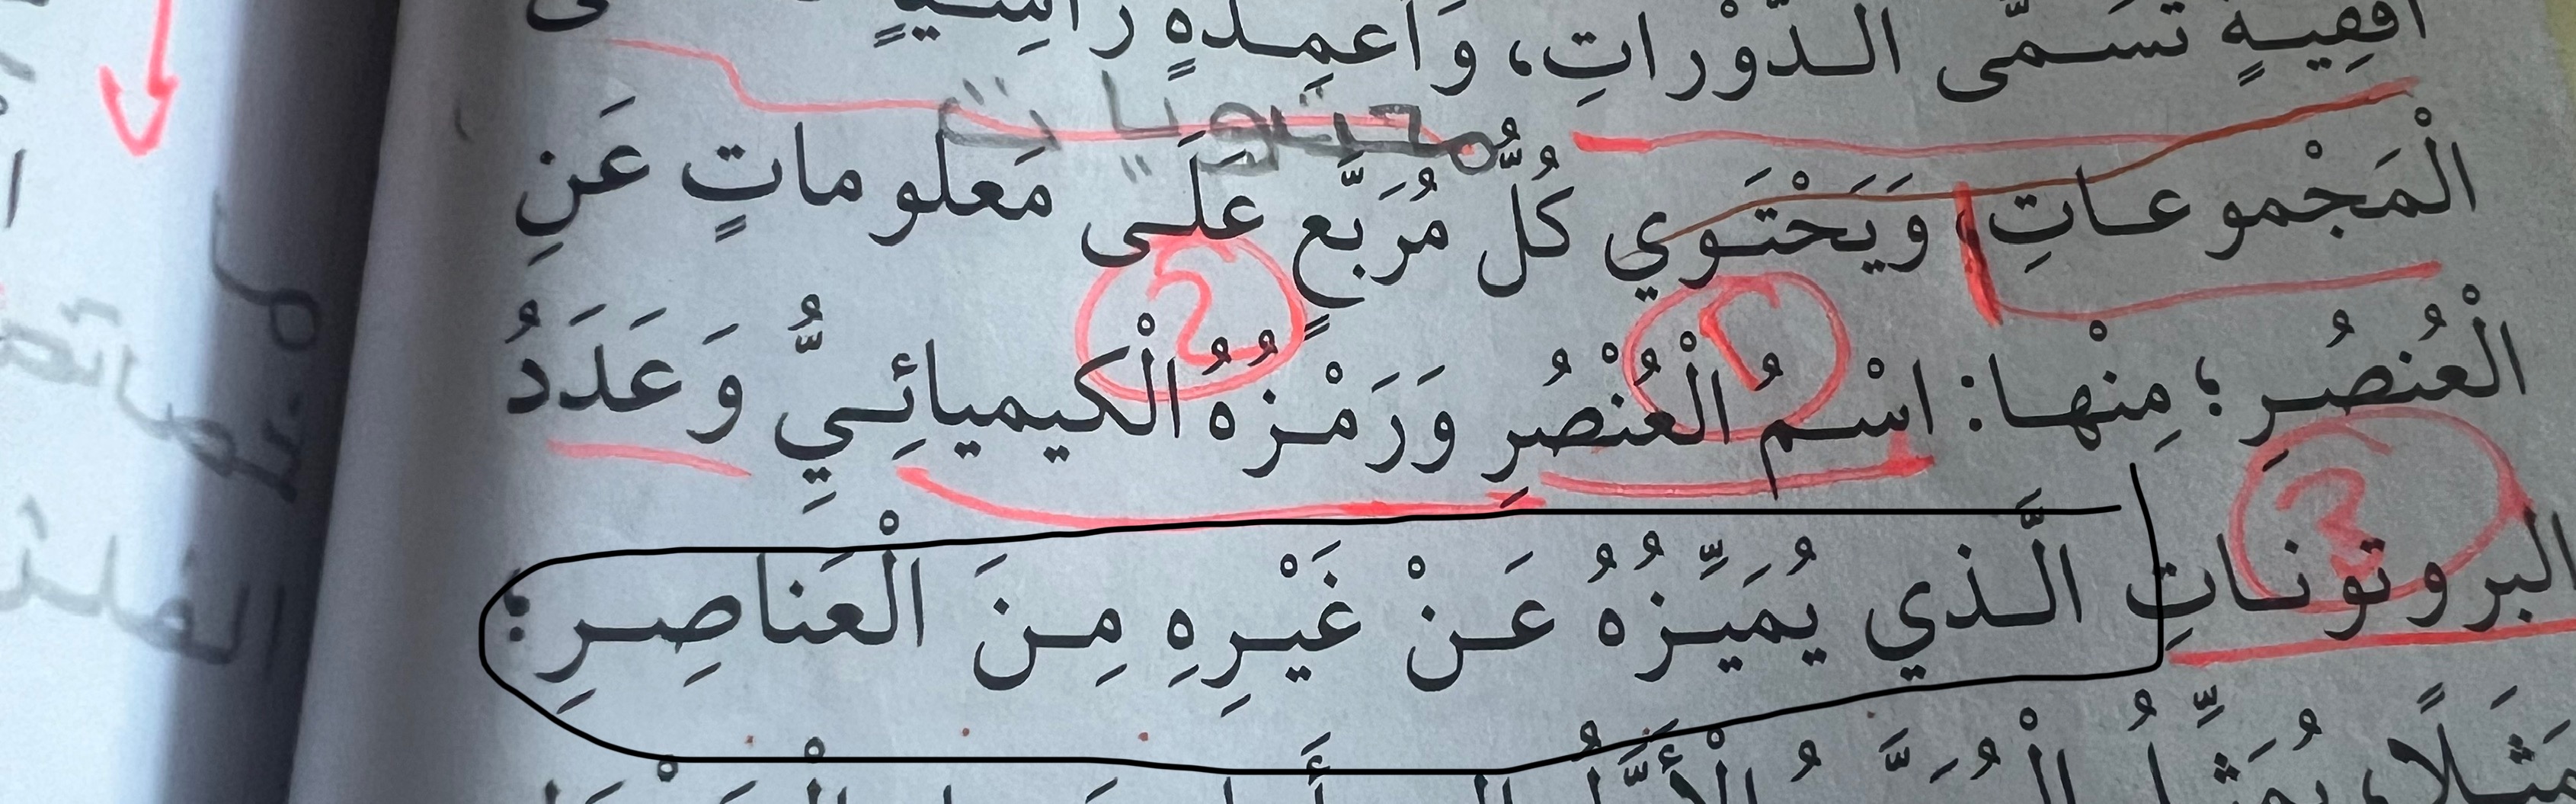 أفقيةٍ تسمّى الدّوراتِ، وأعمدةٍ رأسيّةٍ
محتويات
الْمَجْموعاتِ، وَيَحْتَوي كُلُّ مُرَبَّعٍ عَلَى مَعْلوماتٍ عَنِ
2 1
الْعُنْصُرِ؛ مِنْها: اسْمُ الْعُنْصُرِ وَرَمْزُهُ الْكيميائِيُّ وَعَدَدُ
3
البروتوناتِ الَّذي يُمَيِّزُهُ عَنْ غَيْرِهِ مِنَ الْعَناصِرِ؛